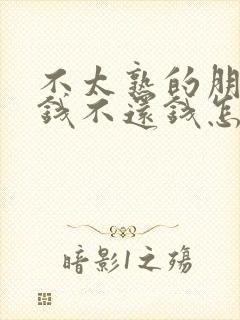 不太熟的朋
钱不还钱怎
暗影1之殇